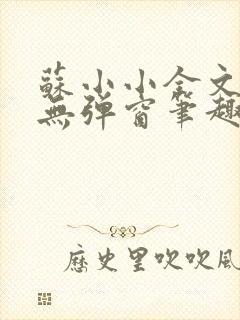 蘇小小全文
無彈窗筆趣
歷史里吹吹風